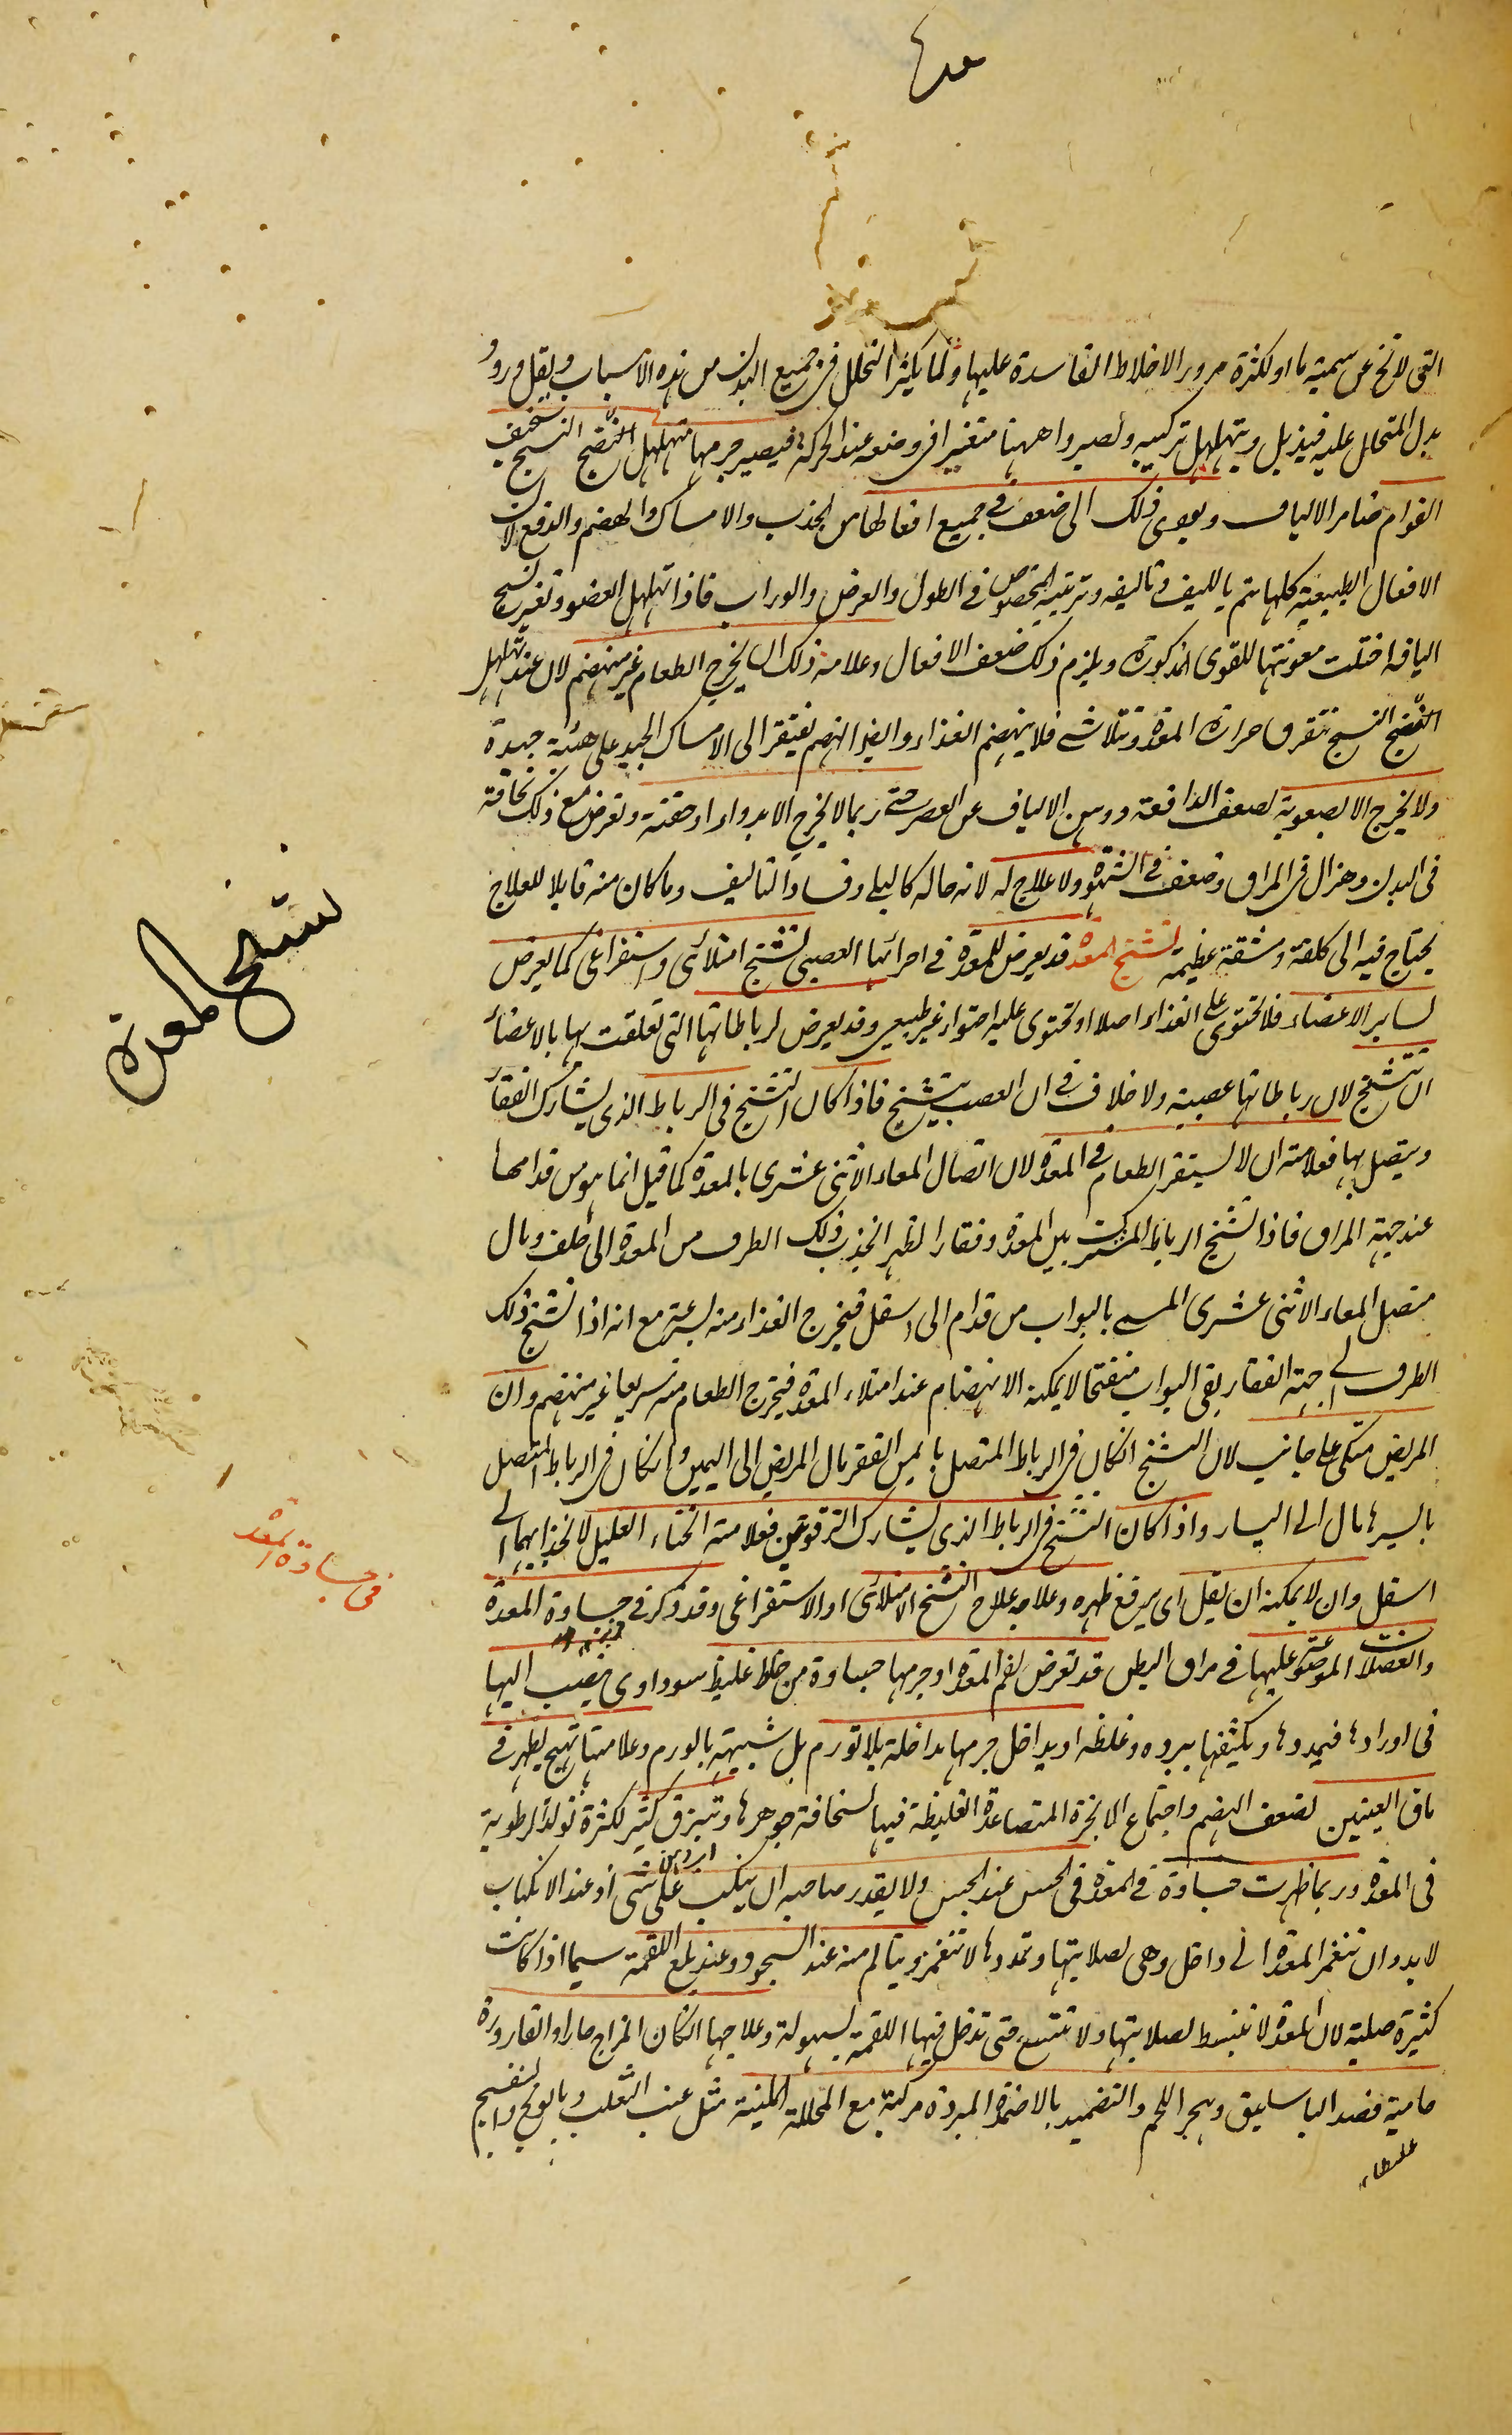 التى لا تخ عن سمية ما او لكثرة مرور الاخلاط الفاسدة عليها ولما يكثر التحلل فى جميع البدن من هذه الاسباب ويقل ورود
بدل المتحلل عليه فيذبل ويتهلهل تركيبه وتصير واههنا متغيرا فى وضعه عند الحركة فيصير جرمها متهلهل النسج سخيف
القوام ضامر الالياف ويودى ذلك الى ضعف فى جميع افعالها من الجذب والامساك والهضم والدفع لان
الافعال الطبيعية كلها يتم بالليف وتاليفه وترتيبه المخصوص فى الطول والعرض والوراب فاذا تهلهل العضو وتغير نسج
اليافه اختلت معونتها للقوى المذكورة ويلزم ذلك ضعف الافعال وعلامة ذلك ان يخرج الطعام غير منهضم لان عند تهلهل
النسج تتفرق حرارة المعدة وتتلاشى فلا ينهضم الغذاء وايضا الهضم يفتقر الى الامساك الجيد على هئية جيدة
ولا يخرج الا بصعوبة لضعف الدافعة ووهن الالياف عن العصر حتى ربما لا يخرج الا بدواء او حقنة وتعرض مع ذلك نحافة
فى البدن وهزال فى المراق وضعف فى الشهوة ولا علاج له لانه حاله كالبلى وفساد التاليف وما كان منه قابلا للعلاج
يحتاج فيه الى كلفة ومشقة عظيمة تشنج المعدة قد يعرض للمعدة فى اجزائها العصبى تشنج امتلائى واستفراغى كما يعرض
لساير الاعضاء فلا تحتوى على الغذاء اصلا او تحتوى عليه احتواء غير طبيعى وقد يعرض لرباطاتها التى تعلقت بها بالاعضاء
ان تتشنج لان رباطاتها عصبية ولا خلاف فى ان العصب يتشنج فاذا كان التشنج فى الرباط الذى يشارك الفقار
ويتصل بها فعلامته ان لا يستقر الطعام فى المعدة لان اتصال المعاء الاثنى عشرى بالمعدة كما قيل انما هو من قدامها
عند جهة المراق فاذا تشنج الرباط المشترك بين المعدة وفقار الظهر انجذب ذلك الطرف من المعدة الى خلف ومال
متصل المعاء الاثنى عشرى المسمى بالبواب من قدام الى اسفل فيخرج الغذاء منه بسرعة مع انه اذا تشنج ذلك
الطرف الى جهة الفقار بقى البواب منفتحا لا يمكنه الانضمام عند امتلاء المعدة فيخرج الطعام منه سريعا غير منهضم وان
المريض متكى على جانب لان التشنج ان كان فى الرباط المتصل بايمن الفقر مال المريض الى اليمين وان كان فى الرباط المتصل
بالسيرها مال الى اليسار واذا كان التشنج فى الرباط الذى يشارك الترقوتين فعلامته انحناء العليل لانجذابهما الى
اسفل وان لا يمكنه ان يقل اى يرفع ظهره وعلاجه علاج التشنج الامتلائى او الاستفراغى وقد ذكر فى جساوة المعدة
والعضلات الموضوعة عليها فى مراق البطن قد تعرض لفم المعدة او جرمها جساوة من خلط غليظ سوداوى ينصب اليها
فى اورادها فيمددها ويكثفها ببرده وغلظه او يداخل جرمها مداخلة بلا تورم بل شبيهة بالورم وعلامتها تهيج يظهر فى
ماق العينين لضعف الهضم واجتماع الابخرة المتصاعدة الغليظة فيها لسخافة جوهرها وتبزق كثير لكثرة تولد الرطوبة
فى المعدة وربما ظهرت جساوة فى المعدة فى الحس عند الجس ولا يقدر صاحبه ان ينكب على شى اذ عند الانكباب
لا بد وان تنغمز المعدة الى داخل وهى لصلابتها وتمددها لا تنغمز ويتالم منه عند السجود وعند بلع اللقمة سيما اذا كانت
كثيرة صلبة لان المعدة لا تنبسط لصلابتها ولا تتسع حتى تدخل فيها اللقمة بسهولة وعلاجها ان كان المزاج حارا والقارورة
حامية فصد الباسليق وهجر اللحم والتضميد بالاضمدة المبردة مركبة مع المحللة الملينة مثل عنب الثعلب وبابونج وبنفسج
تشنج المعدة
فى جساوة المعدة